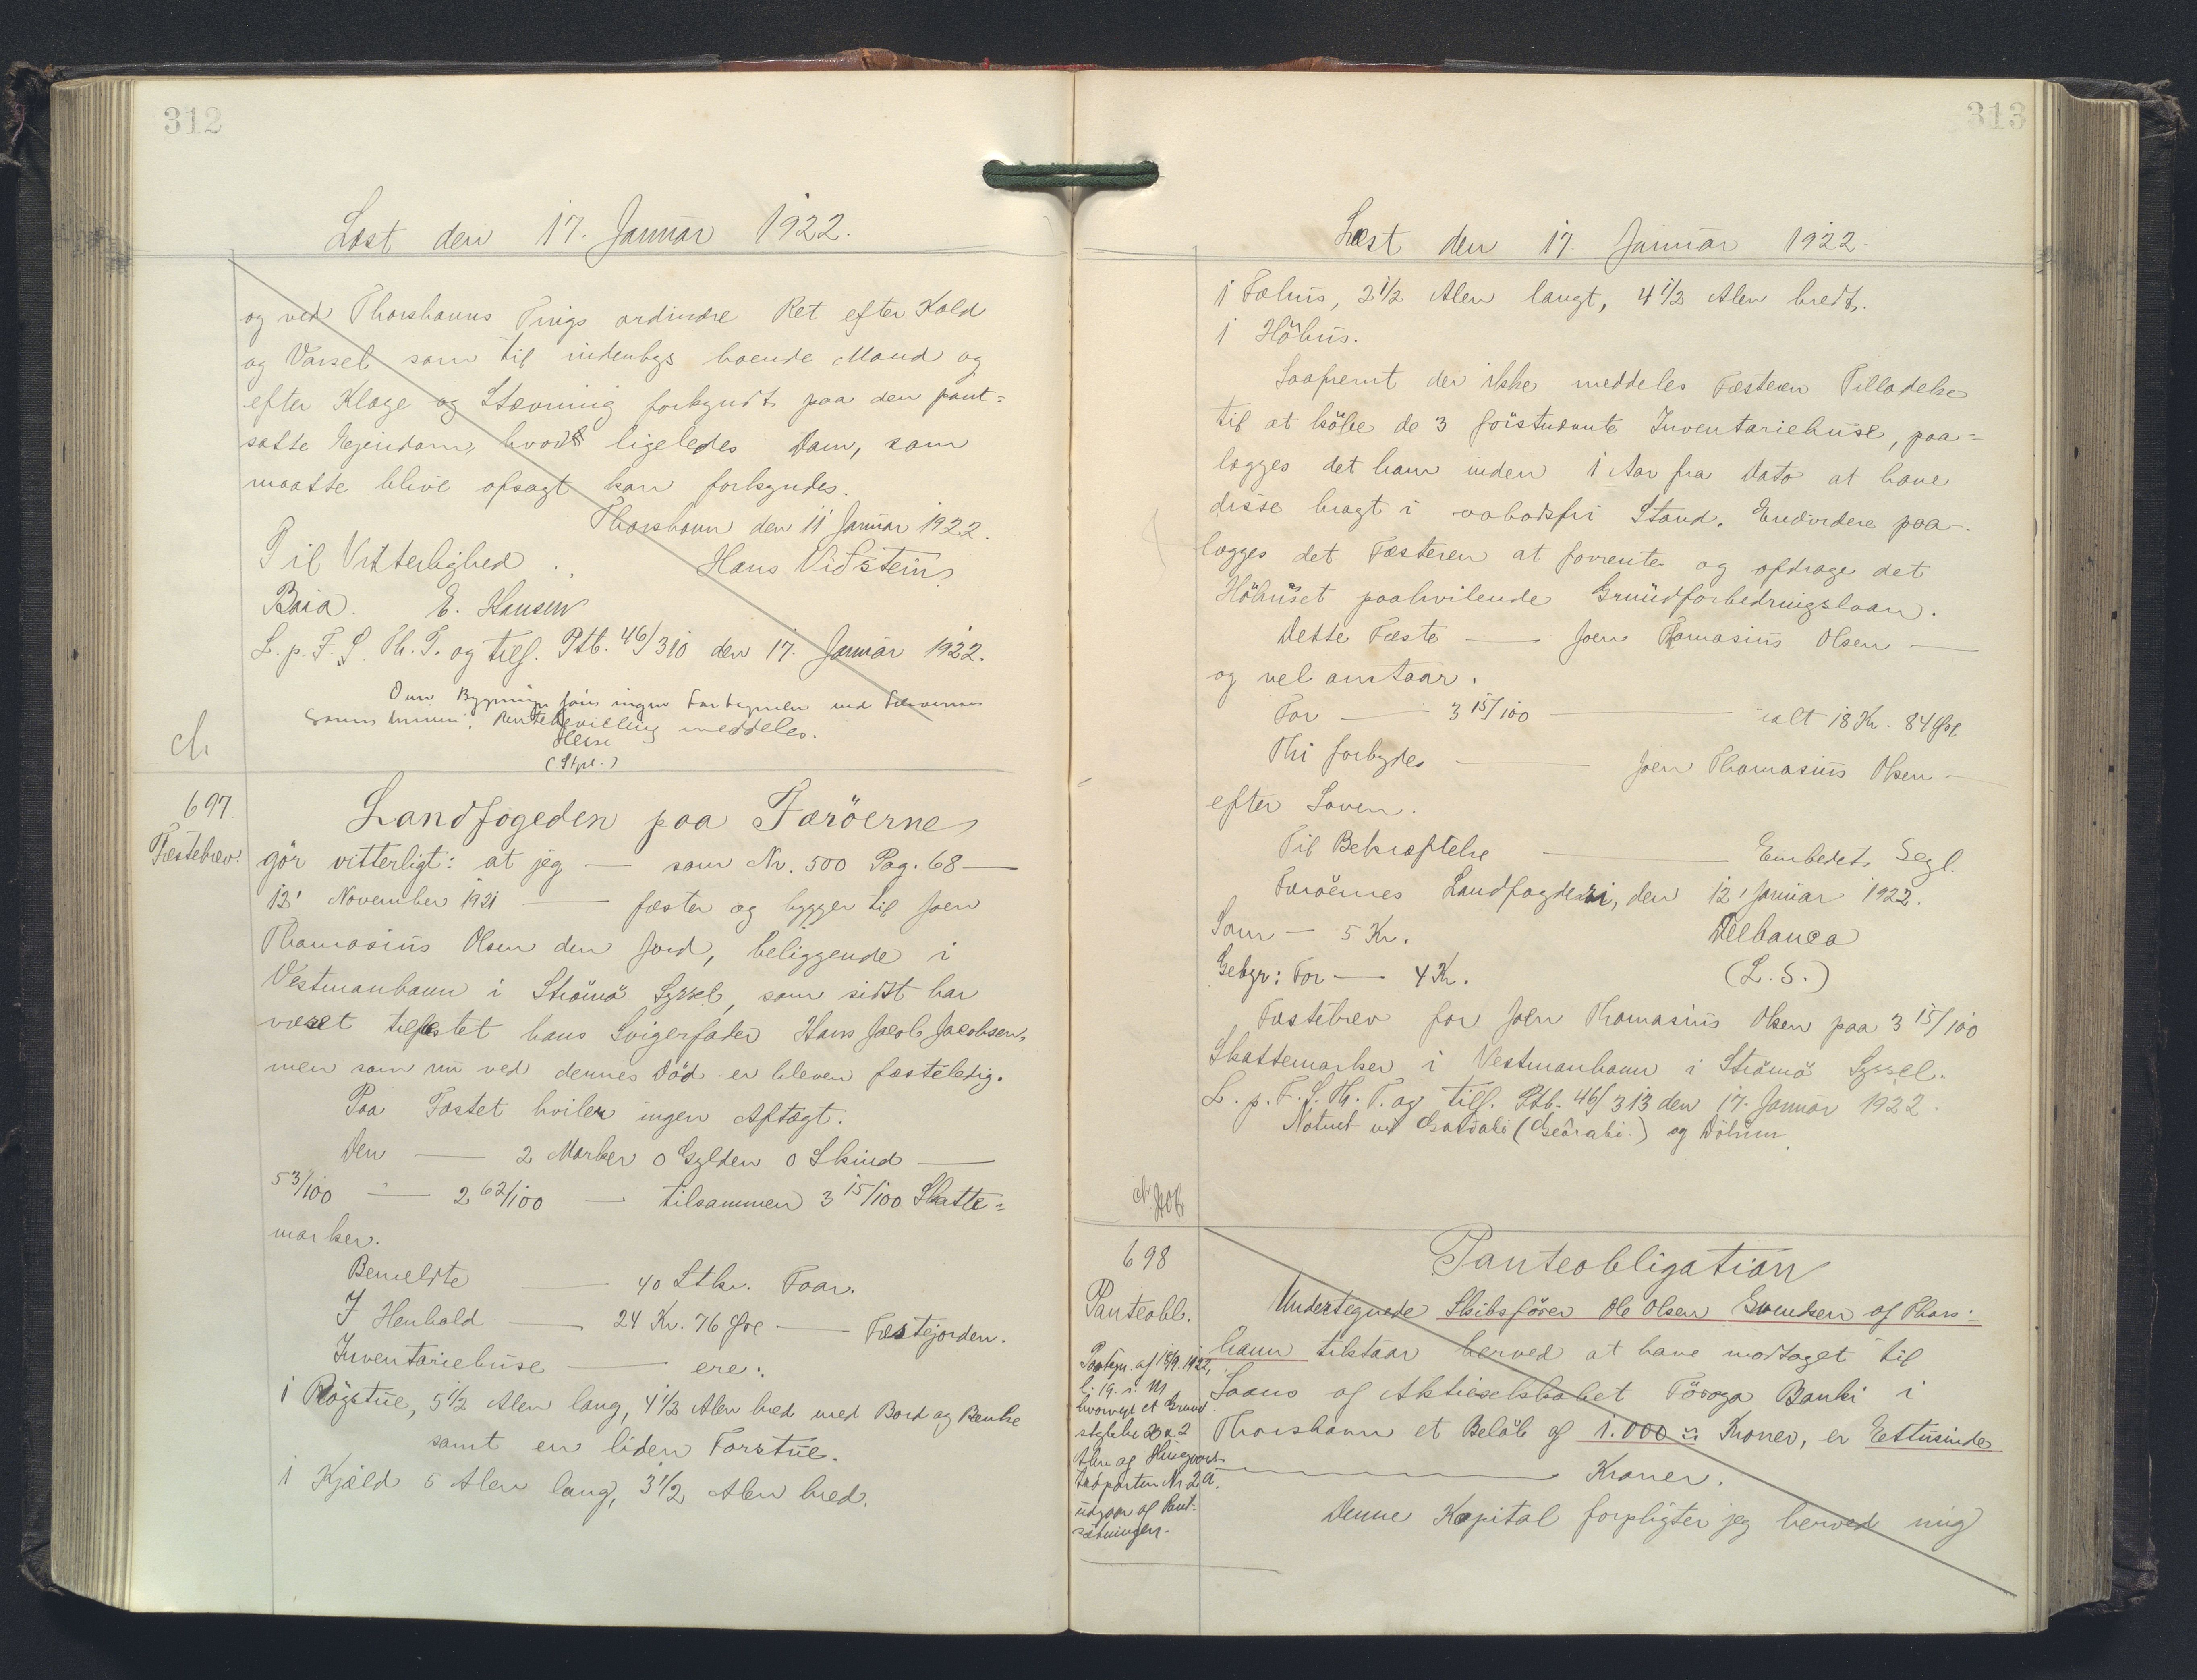 312
Læst den 17. Januar 1922.
og ved Thorshavns Tings ordinære Ret efter Kald
og Varsel som til indenbys boende Mand og
efter Klage og Stævning forkyndt paa den pant=
satte Ejendom, hvor ligeledes Dom, som
maatte blive afsagt kan forkyndes.
Thorshavn den 11 Januar 1922.
Til Vitterlighed. Hans Viðstein
Baia. E. Hansen
L. p. F. S. Th. T. og tilf. Ptb. 46/310 den 17. Januar 1922.
Om Bygninger ingen ved
meddeles.
Heise
(Stpl.)
ch
697.
Fæstebrev.
Landfogeden paa Færöerne
gör vitterligt: at jeg — som Nr. 500 Pag. 68 —
12' November 1921 — fæster og bygger til Joen
Thomasius Olsen den Jord, beliggende i
Vestmanhavn i Strömö Syssel, som sidst har
været tilfæstet hans Svigerfader Hans Jacob Jacobsen,
men som nu ved dennes Död er bleven fæsteledig.
Paa Fæstet hviler ingen Aftægt.
Den — 2 Marker 0 Gylden 0 Skind —
53/100 — 2 62/100 — tilsammen 3 15/100 Skatte=
marker.
Bemeldte — 40 Stkr. Faar.
I Henhold — 24 Kr. 76 Øre — Fæstejorden.
Inventariehuse — ere:
1 Rögstue, 5 1/2 Alen lang, 4 1/2 Alen bred med Bord og Bænke
samt en liden Forstue.
1 Kjæld 5 Alen lang, 3 1/2 Alen bred.
313
Læst den 17. Januar 1922.
1 Fæhus, 2 1/2 Alen langt, 4 1/2 Alen bredt.
1 Höhus.
Saafremt der ikke meddeles Fæsteren Tilladelse
til at köbe de 3 förstnævnte Inventariehuse, paa=
lægges det ham inden 1 Aar fra Dato at have
disse bragt i aabodsfri Stand. Endvidere paa-
lægges det Fæsteren at forrente og afdrage det
Höhuset paahvilende Grundforbedringslaan.
Dette Fæste — Joen Thomasius Olsen —
og vel anstaar.
For — 3 15/100 — ialt 18 Kr. 84 Øre
Thi forbydes — Joen Thomasius Olsen —
efter Loven.
Til Bekræftelse — Embedets Segl.
Færöernes Landfogderi, den 12' Januar 1922.
Som — 5 Kr. Delbanco
Gebyr: For — 4 Kr. (L. S.)
Fæstebrev for Joen Thomasius Olsen paa 3 15/100
Skattemarker i Vestmanhavn i Strömö Syssel.
L. p. F. S. Th. T. og tilf. Ptb. 46/313 den 17. Januar 1922.
Noteret ved og
ch
698
Panteobl.
Paategn. af 15/9. 1922,
l. 19. s. M.
hvorved et Grund
stykke
Alen af Husgrunds
parten Nr 2 a.
udgaar af Pant=
sætningen.
Panteobligation
Undertegnede Skibsförer Ole Olsen Svendsen af Thors=
havn tilstaar herved at have modtaget til
Laans af Aktieselskabet Föroya Banki i
Thorshavn et Belöb af 1.000 Kroner, er Ettusinde
— Kroner.
Denne Kapital forpligter jeg herved mig